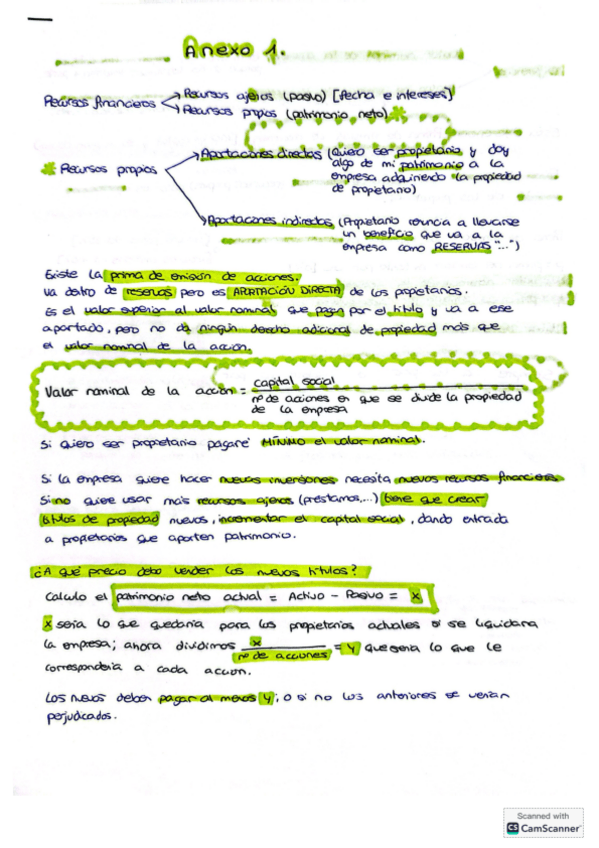 Anexo 1.
Recursos financieros
Recursos ajenos (pasivo) [fecha e intereses]
Recursos propios (patrimonio neto)
Recursos propios
Aportaciones directas (Quiero ser propietario y doy
algo de mi patrimonio a la
empresa adquiriendo la propiedad
de propietario)
Aportaciones indirectas (Propietario renuncia a llevarse
un beneficio que va a la
empresa como RESERVAS "...")
Existe la prima de emisión de acciones.
Va dentro de reservas pero es APORTACIÓN DIRECTA de los propietarios.
Es el valor superior al valor nominal que pagan por el título y va a ese
aportado, pero no da ningún derecho adicional de propiedad más que
el valor nominal de la acción.
Valor nominal de la acción = capital social
nº de acciones en que se divide la propiedad
de la empresa
Si quiero ser propietario pagaré MÍNIMO el valor nominal.
Si la empresa quiere hacer nuevas inversiones necesita nuevos recursos financieros
Si no quiere usar más recursos ajenos (préstamos,...) tiene que crear
títulos de propiedad nuevos, incrementar el capital social, dando entrada
a propietarios que aporten patrimonio.
¿A qué precio debo vender los nuevos títulos?
Calculo el patrimonio neto actual = Activo - Pasivo = x
x sería lo que quedaría para los propietarios actuales si se liquidara
la empresa; ahora dividimos x / nº de acciones = y que sería lo que le
correspondería a cada acción.
Los nuevos deben pagar al menos y, o si no los anteriores se verían
perjudicados.
Scanned with
CS CamScanner